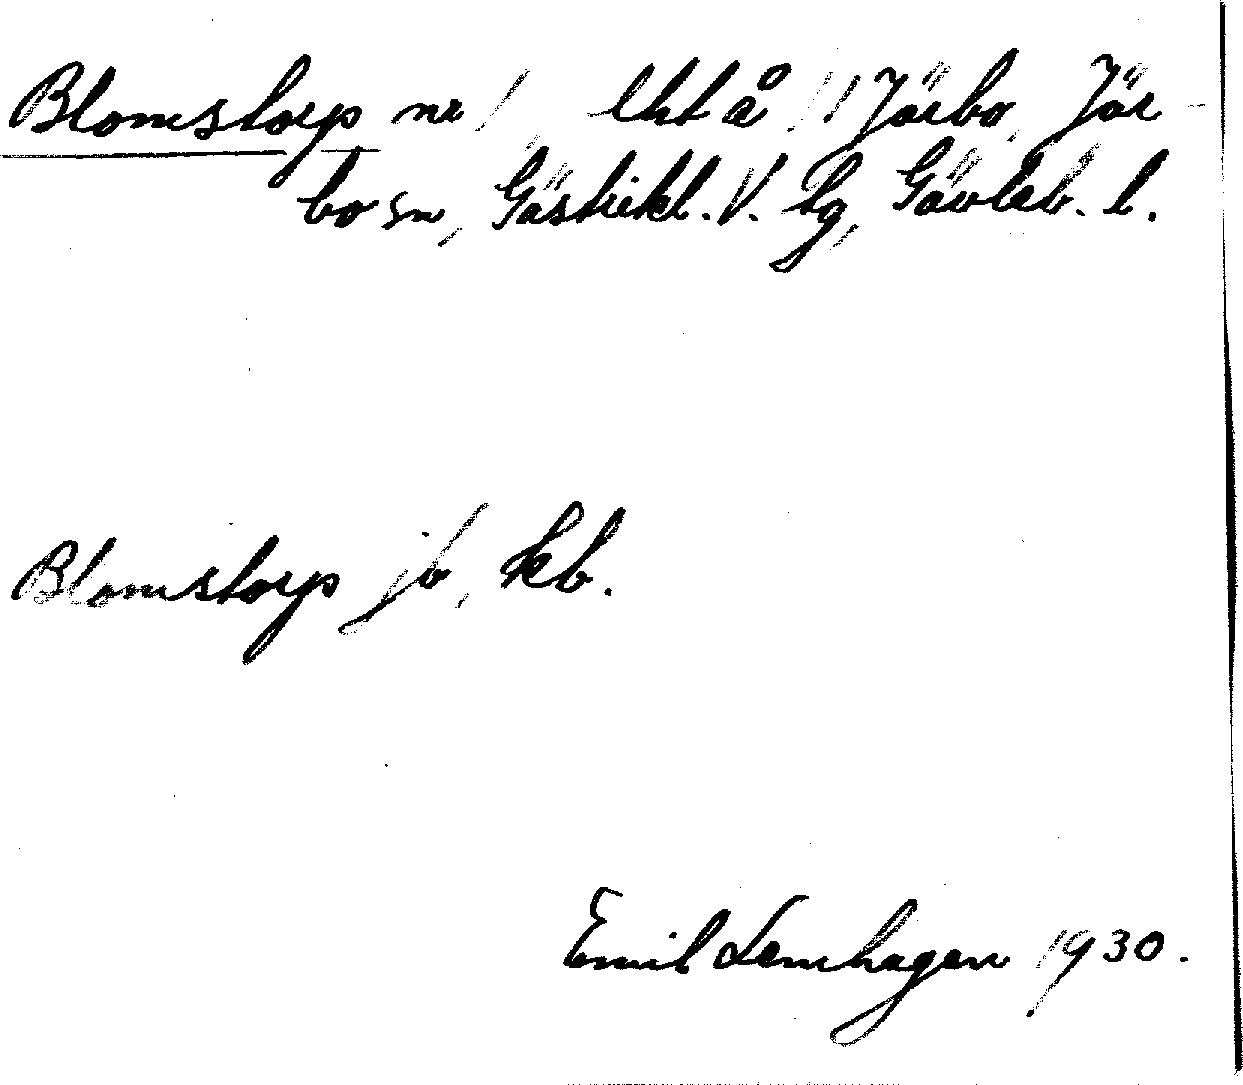 Blomstorp nr 1, lht å 11 Järbo, Jär-
bo sn, Gästrikl. V. tg, Gävleb. l.
Blomstorp jb, kb.
Emil Lemhagen 1930.